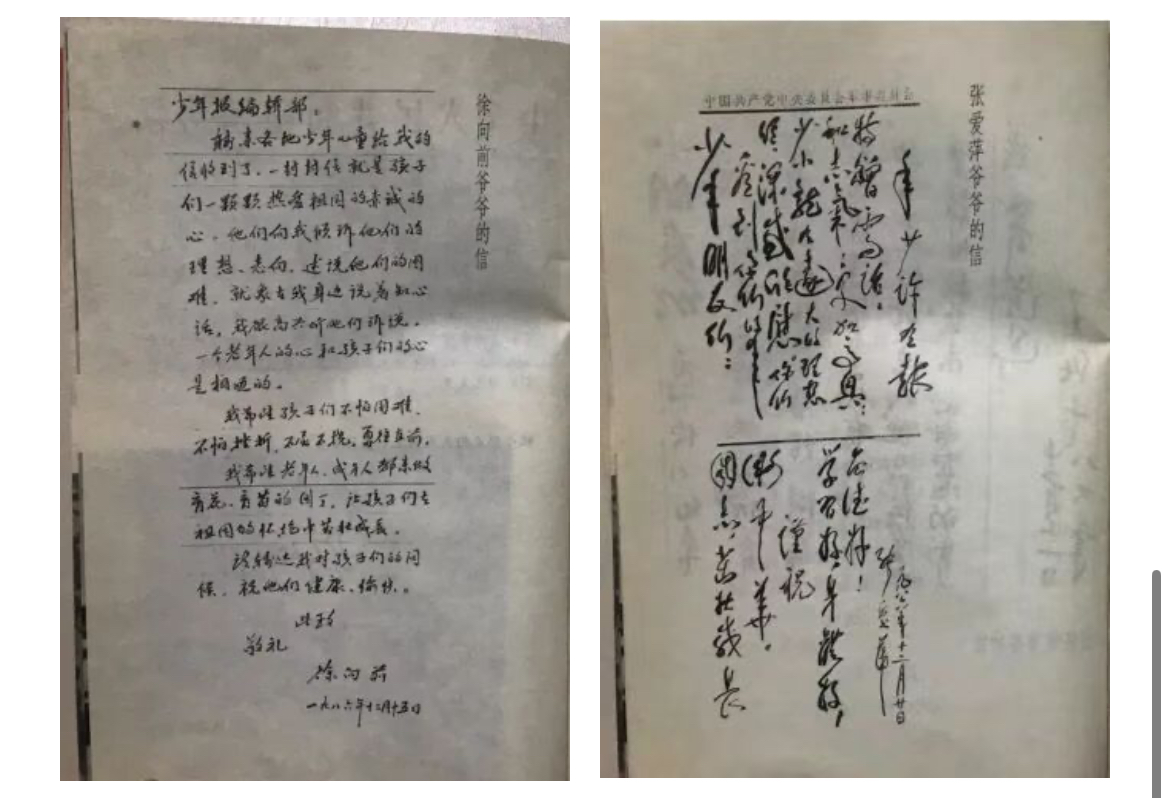 徐向前爷爷的信
少年报编辑部。
转来各地少年儿童给我的
信收到了。一封封信就是孩子
们一颗颗热爱祖国的赤诚的
心。他们向我倾诉他们的
理想、志向,述说他们的困
难,就象在我身边说着知心
话,我很高兴听他们诉说。
一个老年人的心和孩子们的心
是相通的。
我希望孩子们不怕困难、
不怕挫折、不屈不挠,勇往直前。
我希望老年人、成年人都来做
育花、育苗的园丁,让孩子们在
祖国的怀抱中茁壮成长。
请转达我对孩子们的问
候。祝他们健康、愉快。
此致
敬礼
徐向前
一九八六年十二月十五日
张爱萍爷爷的信
中国共产党中央委员会军事委员会
少年朋友们:
看到你们的
深感欣慰 你们
少小就有远大的理想
和志气
特赠寄语:
年少
茁壮成长
谨祝
学习好,身体好,
品德好!
张爱萍
一九八六年十二月廿日